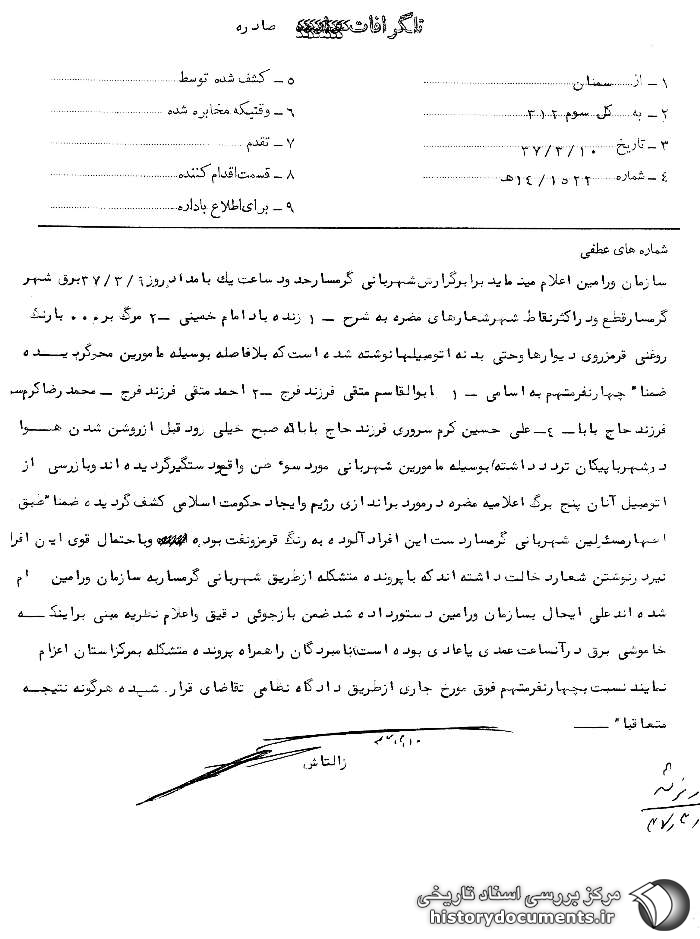 تلگرافات صادره
۱ – از سمنان
۲ – به کل سوم ۳۱۲
۳ – تاریخ ۳۷/۳/۱۰
۴ – شماره ۱۴/۱۵۲۲هـ
۵ – کشف شده توسط
۶ – وقتیکه مخابره شده
۷ – تقدم
۸ – قسمت اقدام کننده
۹ – برای اطلاع باداره
شماره های عطفی
سازمان ورامین اعلام مینماید برابر گزارش شهربانی گرمسار حدود ساعت یك بامداد روز ۳۷/۳/۶ برق شهر
گرمسار قطع و در اکثر نقاط شهر شعارهای مضره به شرح – ۱ زنده باد امام خمینی –۲ مرگ بر ۰۰۰ با رنگ
روغنی قرمز روی دیوارها وحتی بدنه اتومبیلها نوشته شده است که بلافاصله بوسیله مامورین محو گردیده
ضمنا" چهار نفر متهم به اسامی – ۱ ابوالقاسم متقی فرزند فرج –۲ احمد متقی فرزند فرج – محمد رضا کرم
فرزند حاج بابا – ٤– علی حسین کرم سروری فرزند حاج بابا که صبح خیلی زود قبل از روشن شدن هوا
در شهر با پیکان تردد داشته/ بوسیله مامورین شهربانی مورد سوء ظن واقع و دستگیر گردیده اند و بازرسی از
اتومبیل آنان پنج برگ اعلامیه مضره در مورد براندازی رژیم و ایجاد حکومت اسلامی کشف گردیده ضمنا" طبق
اظهار مسئولین شهربانی گرمسار دست این افراد آلوده به رنگ قرمز و نفت بوده و با حتمال قوی این افرا
نیز در نوشتن شعار دخالت داشته اند که با پرونده متشکله از طریق شهربانی گرمسار به سازمان ورامین ام
شده اند علی ایحال بسازمان ورامین دستور داده شد ضمن بازجوئی دقیق و اعلام نظریه مبنی بر اینکه
خاموشی برق در آنساعت عمدی یا عادی بوده است نامبردگان را همراه پرونده متشکله بمرکز استان اعزام
نمایند نسبت بچهار نفر متهم فوق مورخ جاری از طریق دادگاه نظامی تقاضای قرار. شیده هرگونه نتیجه
متعاقبا"
۳۷/۳/۱۰
زالتاش
۳۷/۳/
مرکز بررسی اسناد تاریخی
historydocuments.ir